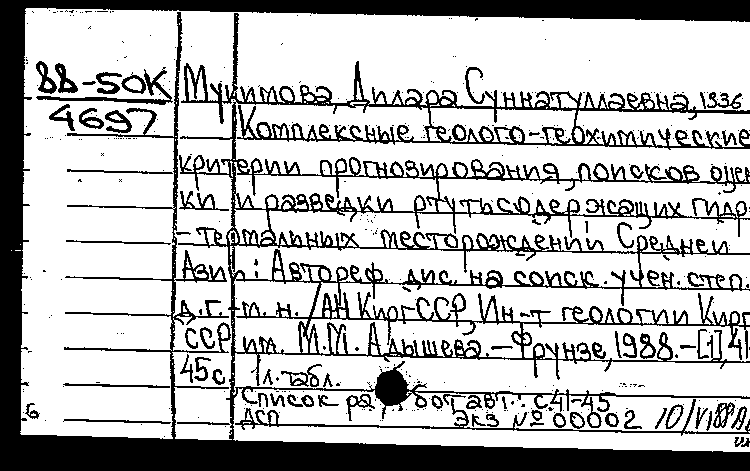 88-50К Мукимова, Дилара Суннатуллаевна, 1936
4697 Комплексные геолого-геохимические
критерии прогнозирования, поисков оцен
ки и разведки ртутьсодержащих гидро
-термальных месторождений Средней
Азии: Автореф. дис. на соиск. учен. степ.
д.г.-м.н. / АН КиргССР, Ин-т геологии Кирг
ССР им. М.М. Адышева. - Фрунзе, 1988. - [1], 41
45с 1л. табл.
Список ра бот авт.: с.41-45
ДСП Экз № 00002 10/VI 88
б